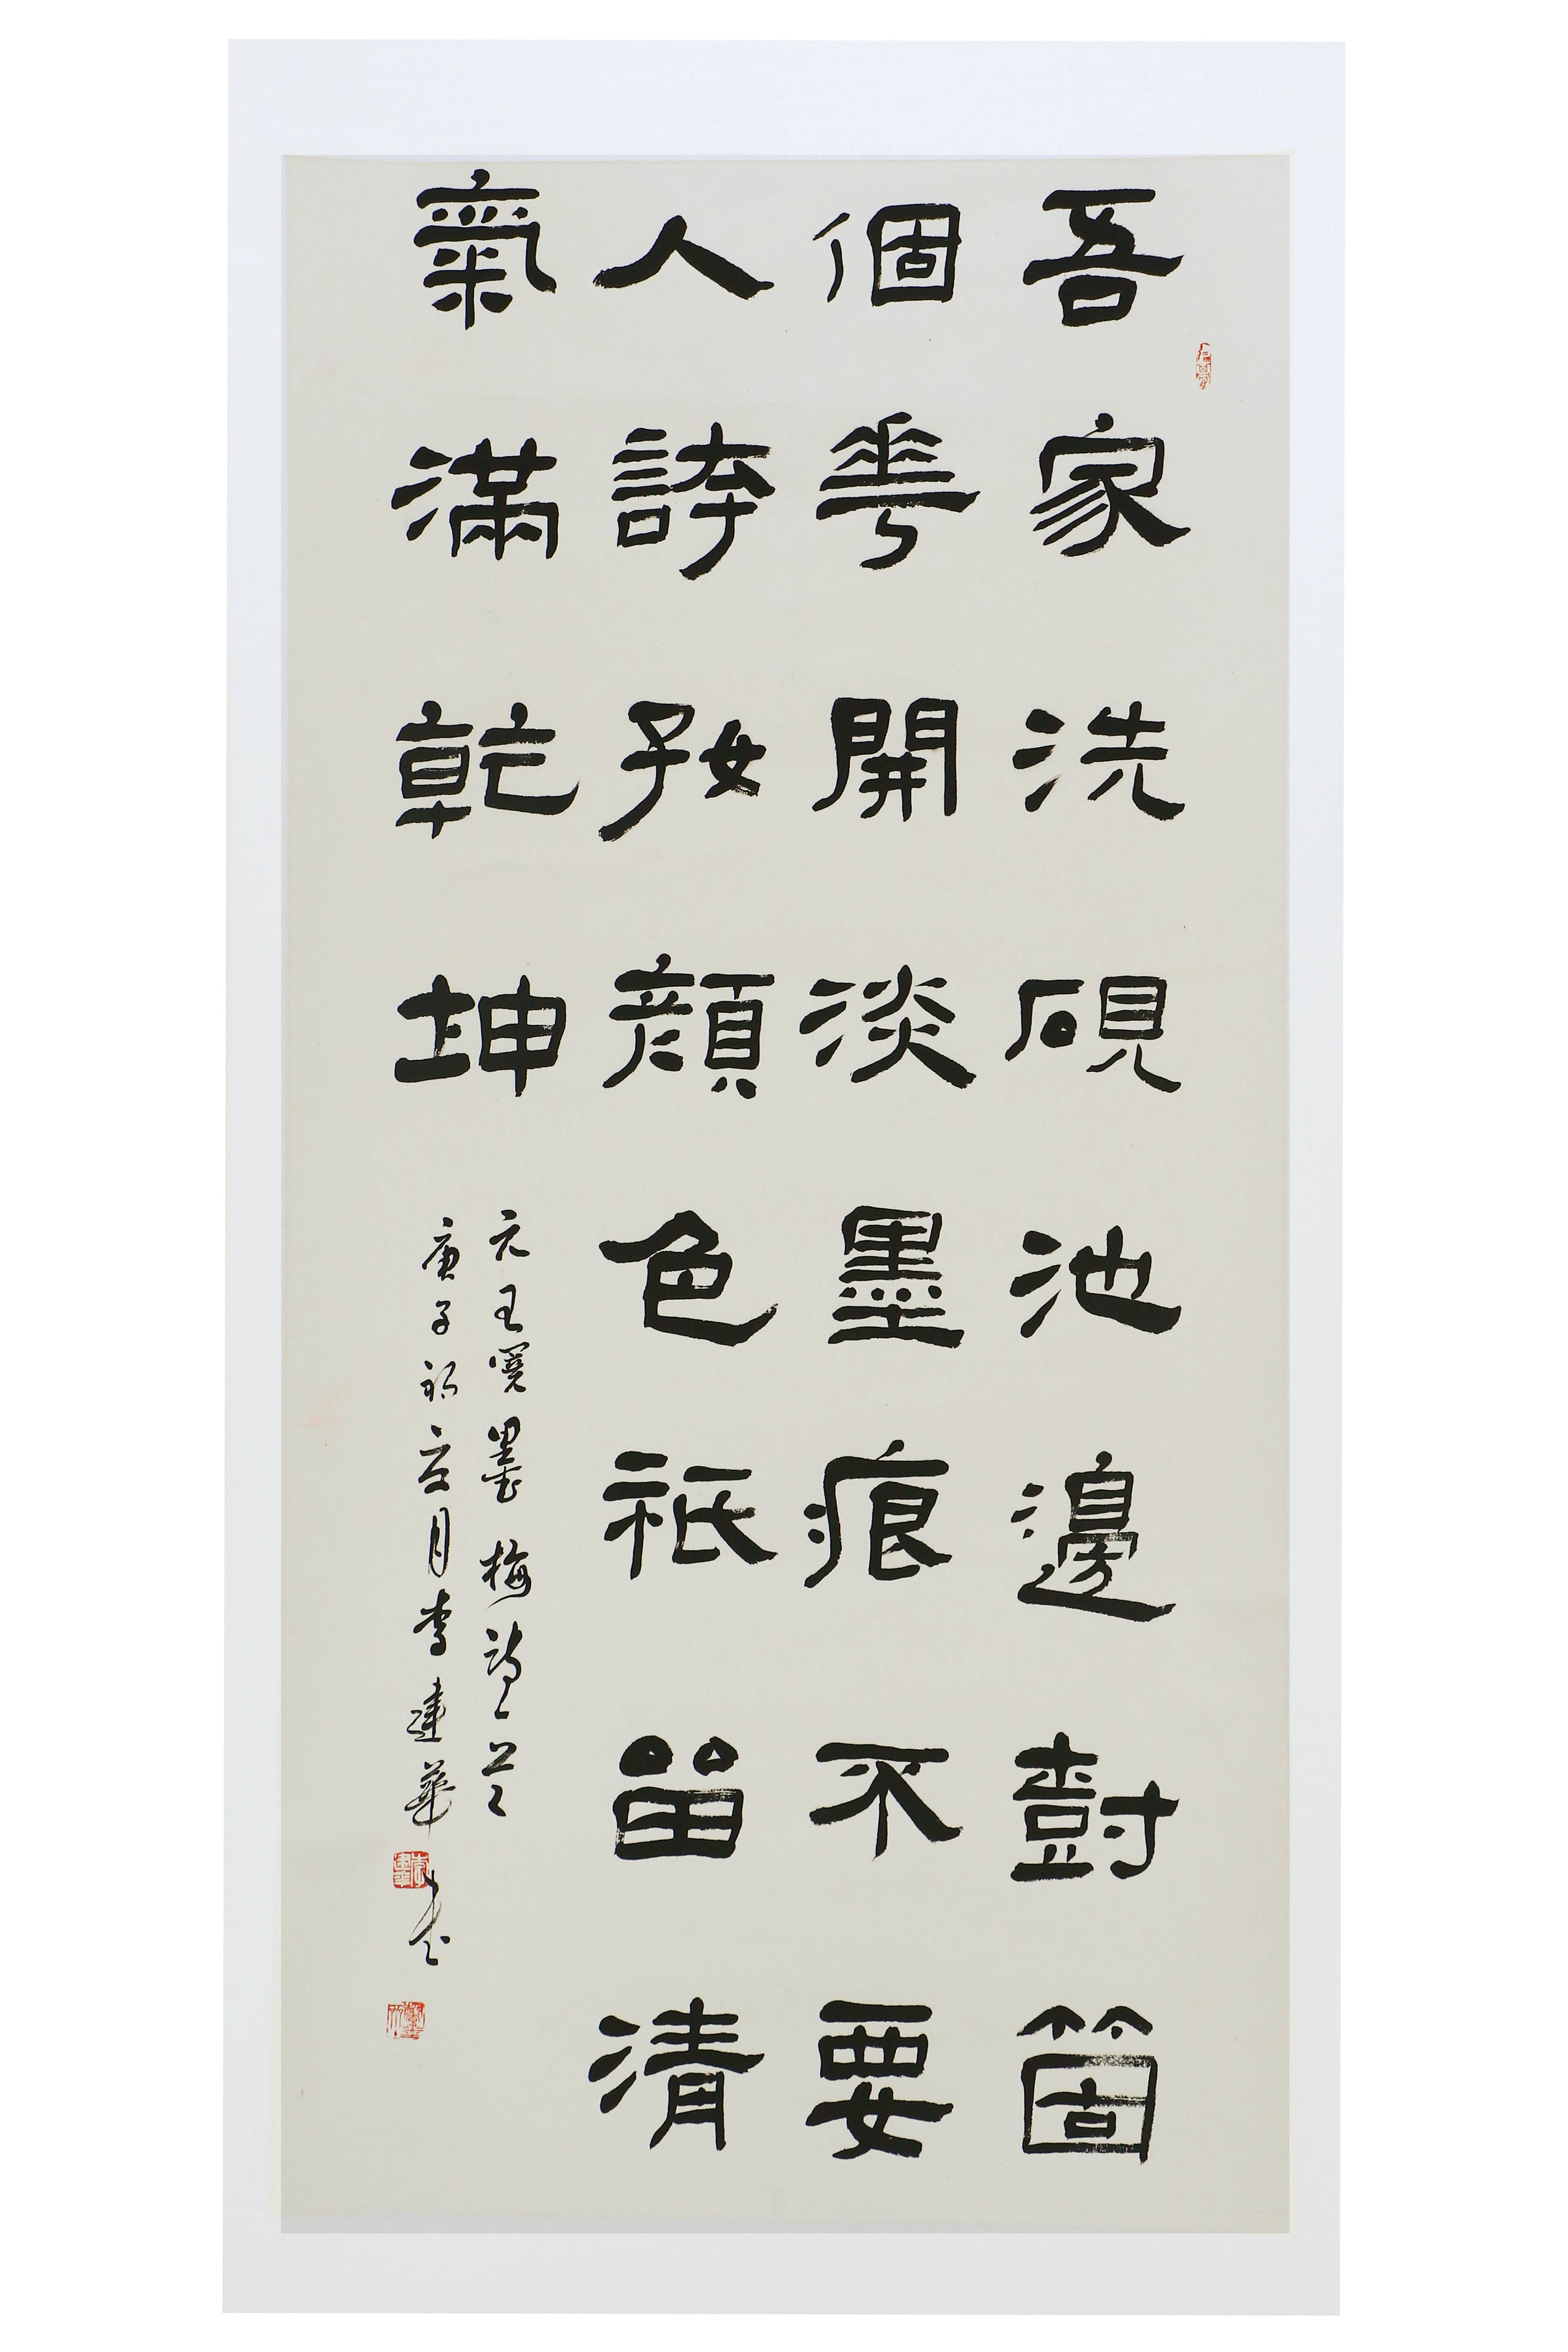 吾家洗硯池邊樹箇
個華開淡墨痕不要
人誇好顏色祇留清
氣滿乾坤
元王冕墨梅詩一首
庚子初夏月李建華書
李建華